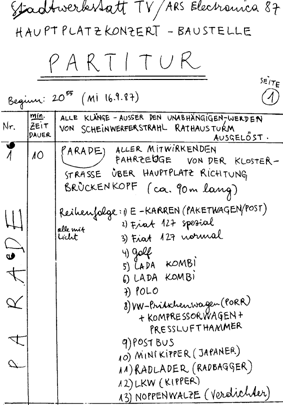 Stadtwerkstatt TV / ARS Electronica 87
HAUPTPLATZKONZERT - BAUSTELLE
PARTITUR
SEITE
1
Beginn: 20⁵⁵ (Mi 16.9.87)
Nr.
min. ZEIT DAUER
ALLE KLÄNGE - AUSSER DEN UNABHÄNGIGEN - WERDEN
VON SCHEINWERFERSTRAHL RATHAUSTURM
AUSGELÖST.
1
10
PARADE
PARADE ALLER MITWIRKENDEN
FAHRZEUGE VON DER KLOSTER-
STRASSE ÜBER HAUPTPLATZ RICHTUNG
BRÜCKENKOPF (ca. 90m lang)
Reihenfolge: 1) E-KARREN (PAKETWAGEN/POST)
alle mit
Licht
2) Fiat 127 spezial
3) Fiat 127 normal
4) golf
5) LADA KOMBI
6) LADA KOMBI
7) POLO
8) VW-Pritschenwagen (PORR)
+ KOMPRESSORWAGEN +
PRESSLUFTHAMMER
9) POSTBUS
10) MINIKIPPER (JAPANER)
11) RADLADER (RADBAGGER)
12) LKW (KIPPER)
13) NOPPENWALZE (Verdichter)